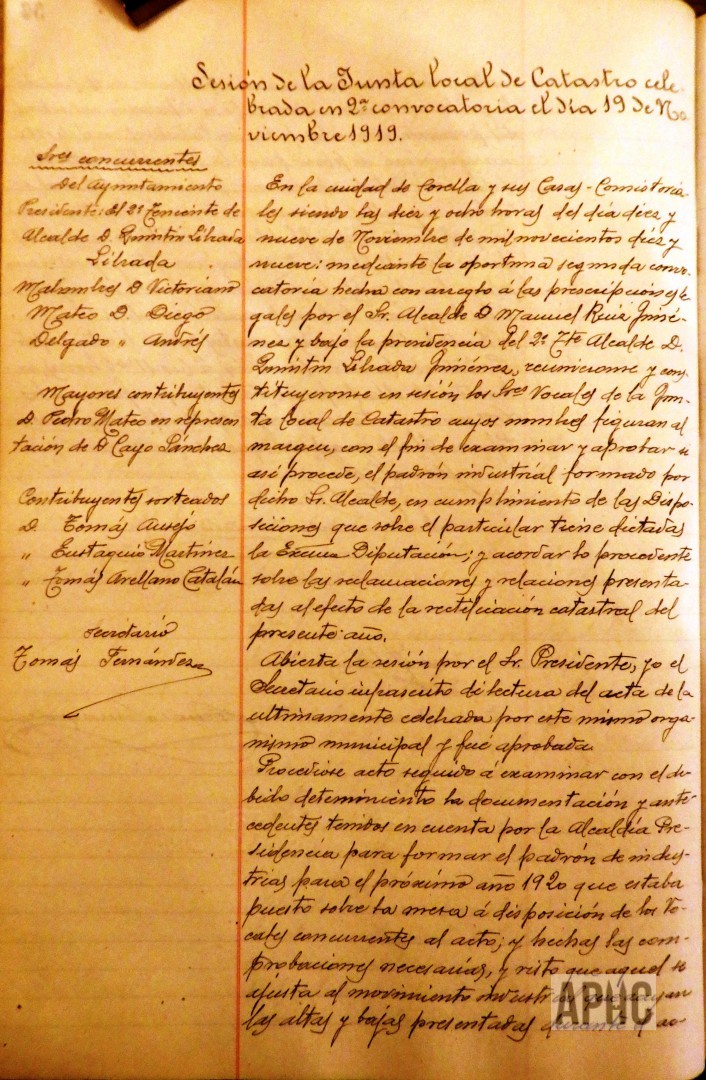 Sesión de la Junta local de Catastro cele-
brada en 2ª convocatoria el día 19 de No-
viembre 1919.
Sres concurrentes
Del Ayuntamiento
Presidente: el 2º Teniente de
Alcalde D. Quintin Librada
Librada
Malumbres D Victoriano
Mateo D. Diego
Delgado " Andrés
Mayores contribuyentes
D. Pedro Mateo en represen
tación de D Cayo Sánchez
Contribuyentes sorteados
D. Tomás Ausejo
" Eustaquio Martínez
" Tomás Arellano Catalán
Secretario
Tomás Fernández
En la ciudad de Corella y sus Casas-Consistoria-
les siendo las diez y ocho horas del día diez y
nueve de Noviembre de mil novecientos diez y
nueve: mediante la oportuna segunda convo-
catoria hecha con arreglo á las prescripciones le-
gales por el Sr. Alcalde D Manuel Ruiz Jimé-
nez y bajo la presidencia del 2º Tte Alcalde D.
Quintin Librada Jiménez, reunieronse y cons
tituyeronse en sesión los Sres Vocales de la Jun-
ta local de Catastro cuyos nombres figuran al
margen, con el fin de examinar y aprobar si
así procede, el padrón industrial formado por
dicho Sr. Alcalde, en cumplimiento de las Dispo-
siciones que sobre el particular tiene dictadas
la Excma Diputación; y acordar lo procedente
sobre las reclamaciones y relaciones presenta-
das al efecto de la rectificación catastral del
presente año.
Abierta la sesión por el Sr. Presidente, yo el
Secretario infrascrito di lectura del acta de la
ultimamente celebrada por este mismo orga-
nismo municipal y fué aprobada.
Procediose acto seguido á examinar con el de-
bido detenimiento la documentación y ante-
cedentes tenidos en cuenta por la Alcaldía Pre-
sidencia para formar el padrón de indus-
trias para el próximo año 1920 que estaba
puesto sobre la mesa á disposición de los Vo-
cales concurrentes al acto; y hechas las com-
probaciones necesarias, y visto que aquel se
ajusta al movimiento
las altas y bajas presentadas durante el ac-
APHC